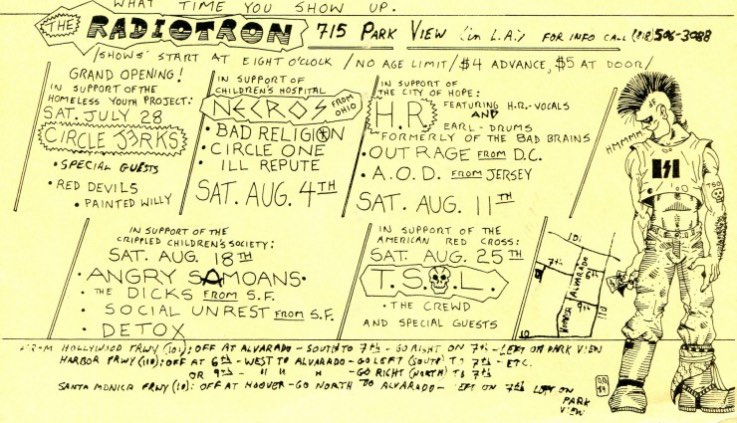 WHAT TIME YOU SHOW UP.
THE RADIOTRON 715 PARK VIEW (in L.A.) FOR INFO CALL (818) 506-3088
/SHOWS START AT EIGHT O'CLOCK / NO AGE LIMIT / $4 ADVANCE, $5 AT DOOR /
GRAND OPENING!
IN SUPPORT OF THE
HOMELESS YOUTH PROJECT:
SAT. JULY 28
CIRCLE JERKS
• SPECIAL GUESTS
• RED DEVILS
• PAINTED WILLY
IN SUPPORT OF
CHILDREN'S HOSPITAL
NECROS FROM OHIO
• BAD RELIGION
• CIRCLE ONE
• ILL REPUTE
SAT. AUG. 4TH
IN SUPPORT OF
THE CITY OF HOPE:
H.R. FEATURING H.R.-VOCALS
AND
EARL - DRUMS
FORMERLY OF THE BAD BRAINS
• OUTRAGE FROM D.C.
• A.O.D. FROM JERSEY
SAT. AUG. 11TH
HMMMM
TSOL
IN SUPPORT OF THE
CRIPPLED CHILDREN'S SOCIETY:
SAT. AUG 18TH
• ANGRY SAMOANS •
• THE DICKS FROM S.F.
• SOCIAL UNREST FROM S.F.
• DETOX
IN SUPPORT OF THE
AMERICAN RED CROSS:
SAT. AUG 25TH
T.S.O.L.
• THE CREWD
AND SPECIAL GUESTS
101
7th
6th
ALVARADO
9th
HOOVER
110
10
FROM HOLLYWOOD FRWY (101): OFF AT ALVARADO - SOUTH TO 7th - GO RIGHT ON 7th - LEFT ON PARK VIEW
HARBOR FRWY (110): OFF AT 6th - WEST TO ALVARADO - GO LEFT (SOUTH) TO 7th - ETC.
OR 9th - " " " - GO RIGHT (NORTH) TO 7th
SANTA MONICA FRWY (10): OFF AT HOOVER - GO NORTH TO ALVARADO - LEFT ON 7th LEFT ON
PARK
VIEW